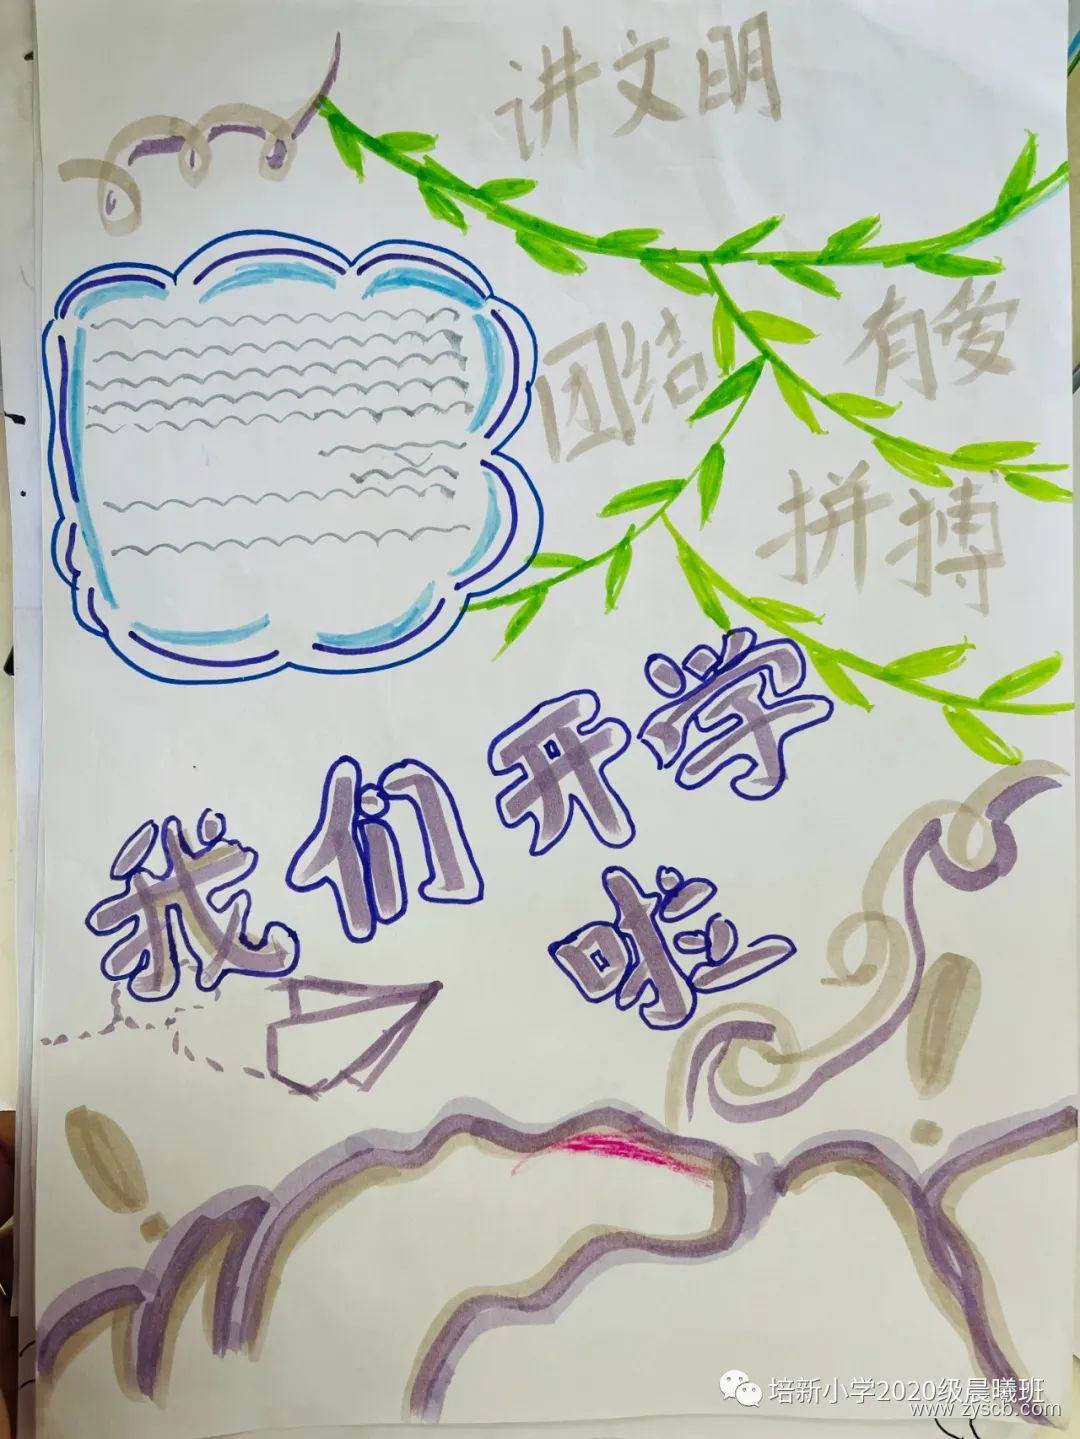 讲文明
团结 有爱
拼搏
我们开学
啦
培新小学2020级晨曦班
www.zyscb.com